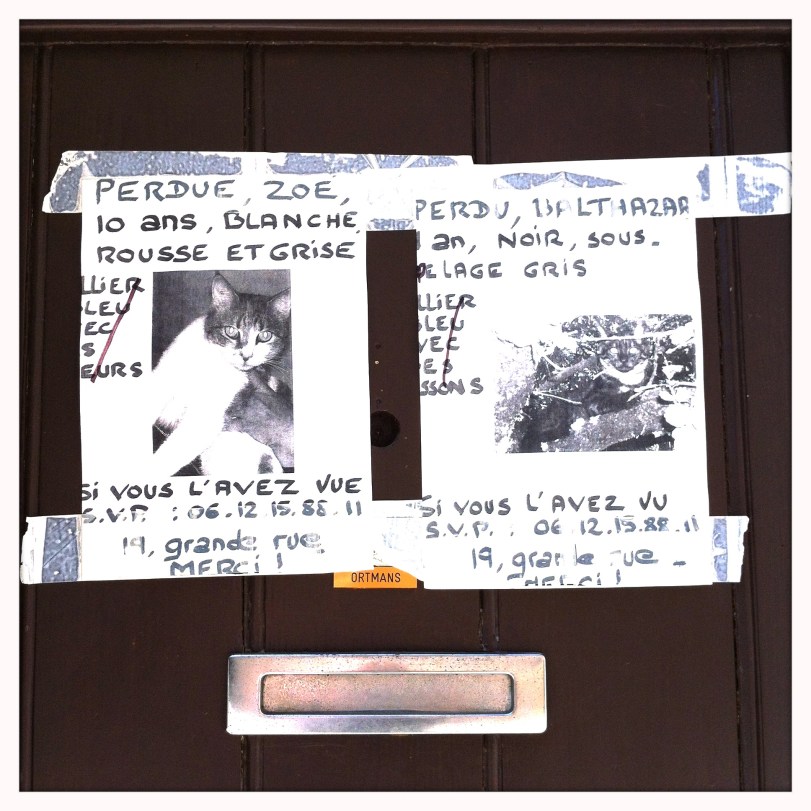 PERDUE, ZOE,
10 ans, BLANCHE,
ROUSSE ET GRISE
LLIER
LEU
EC
S
EURS
SI VOUS L'AVEZ VUE
S.V.P. : 06.12.15.88.11
19, grande rue
MERCI!
PERDU, BALTHAZAR
1 an, NOIR, SOUS-
PELAGE GRIS
LLIER
LEU
VEC
ES
SSONS
SI VOUS L'AVEZ VU
S.V.P. : 06.12.15.88.11
19, grande rue -
MERCI!
ORTMANS